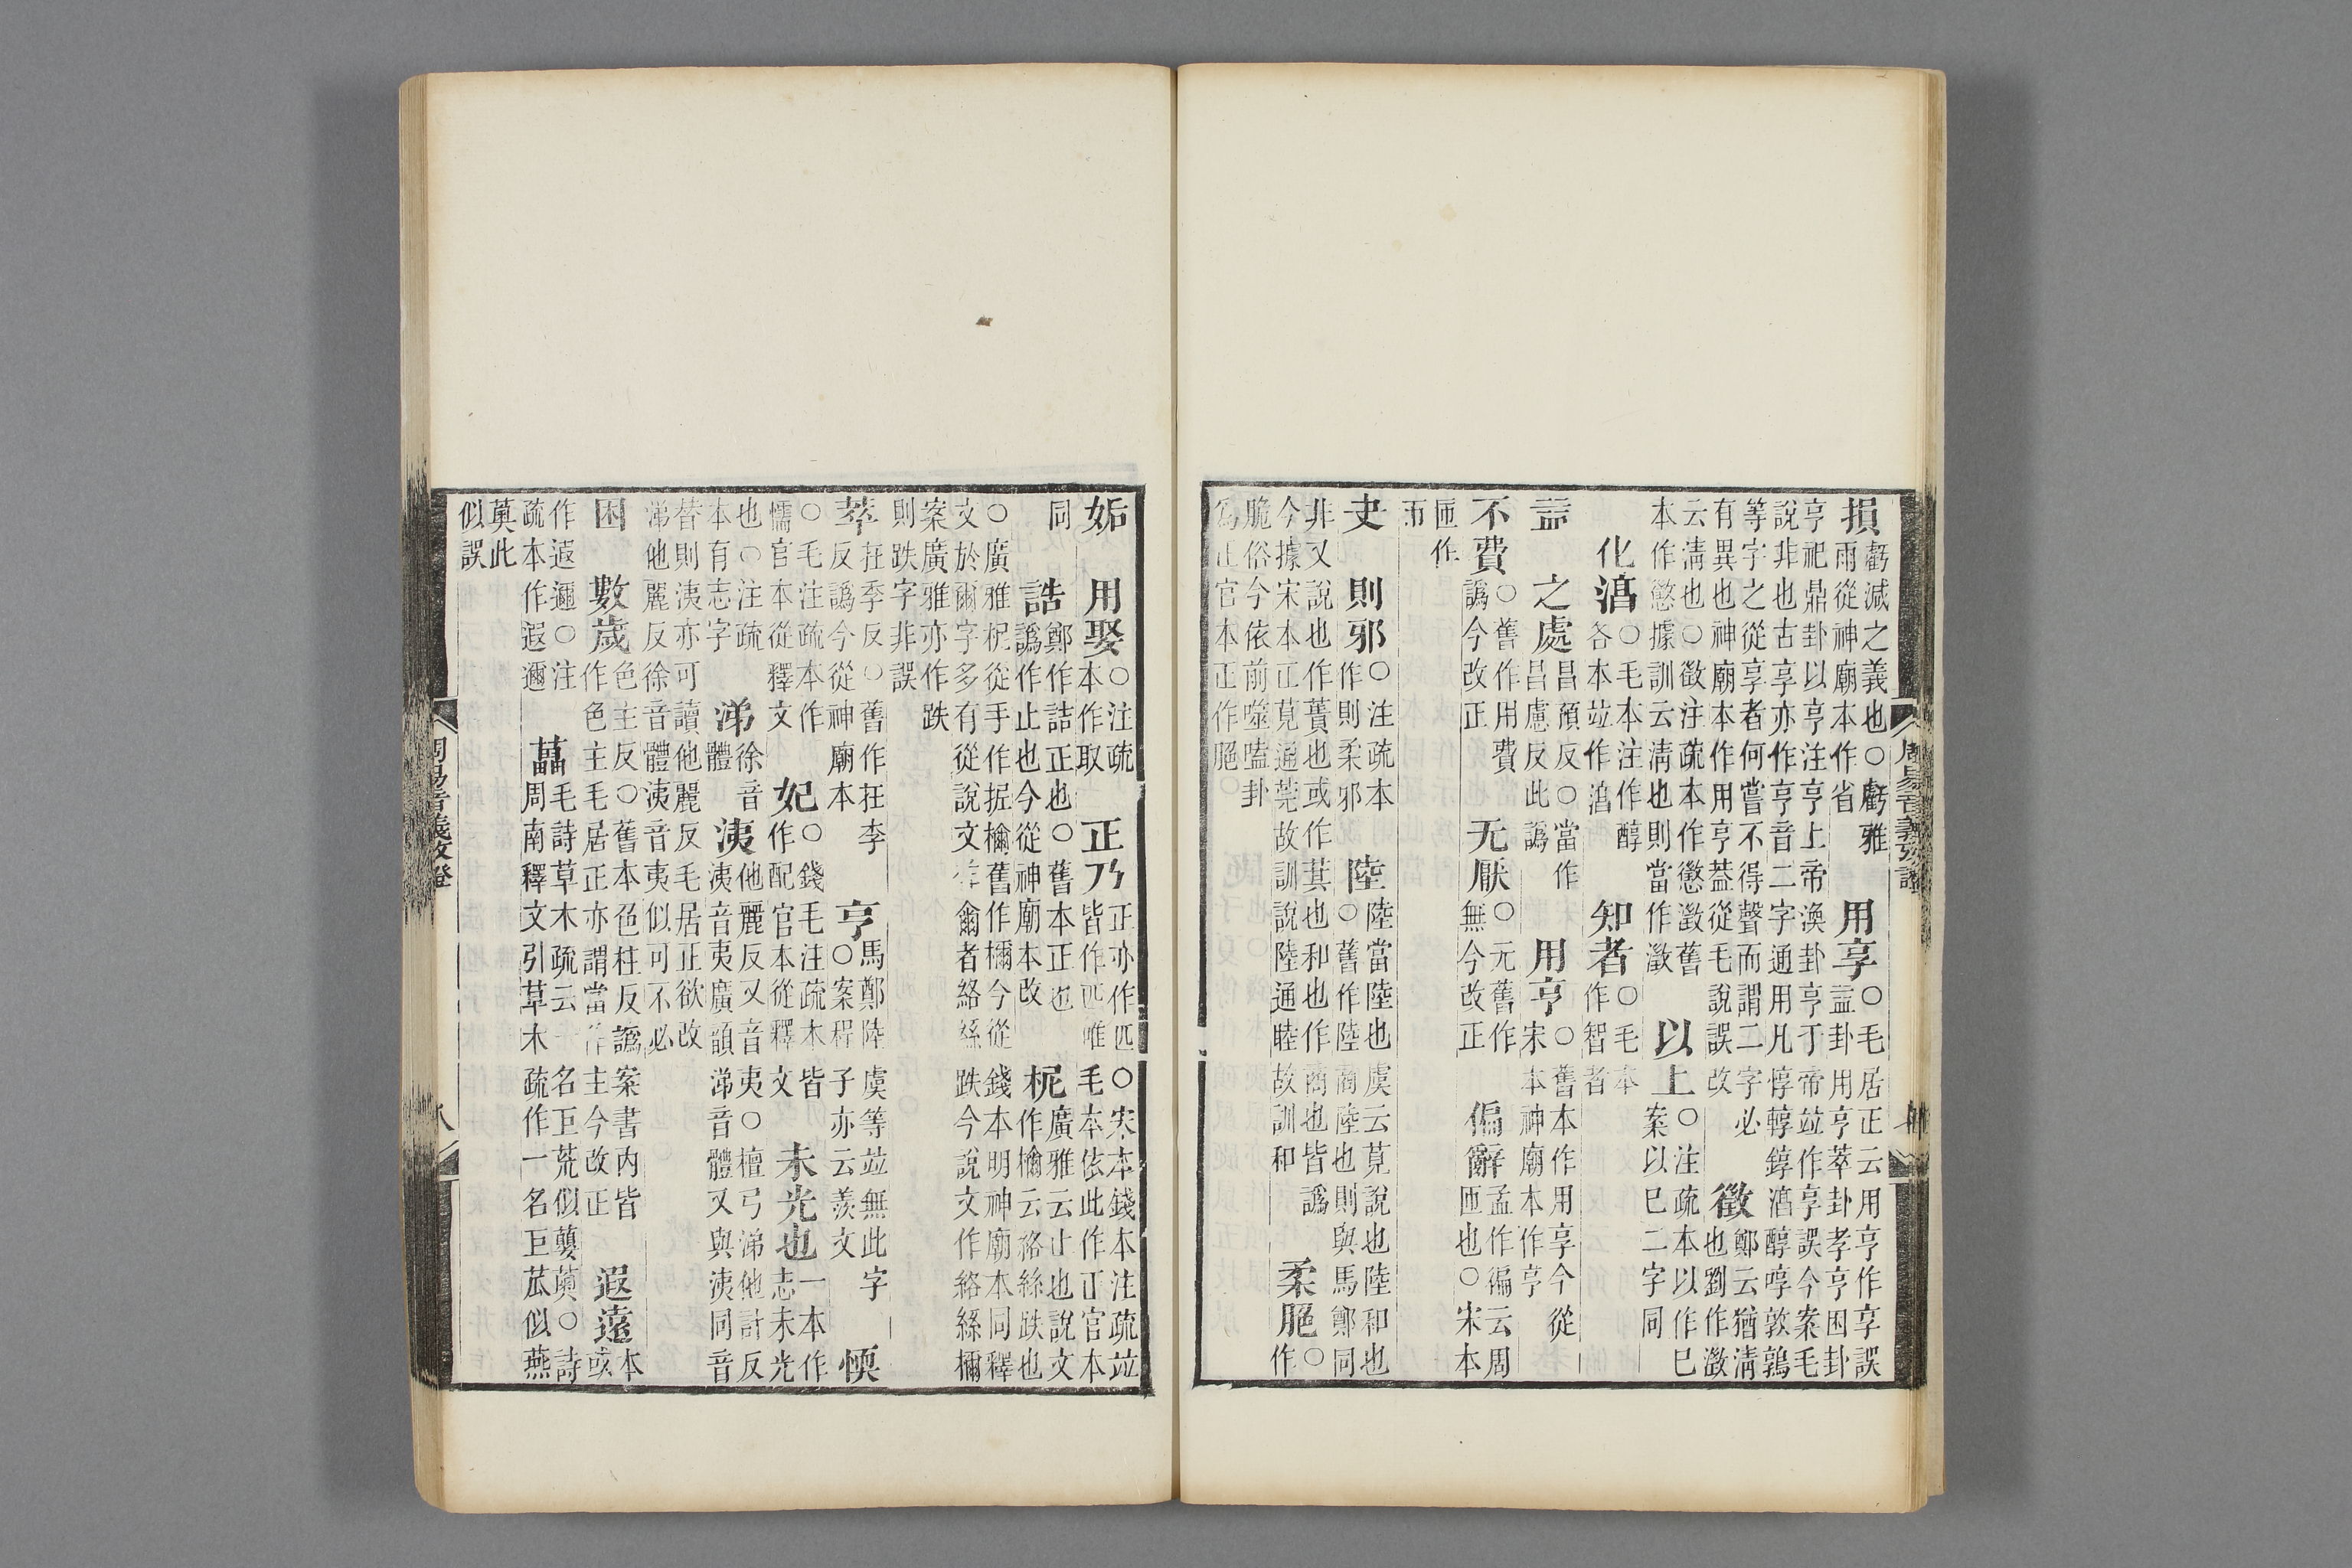 損
虧減之義也○虧雅
雨從神廟本作省
用享
○毛居正云用亨作享誤
益卦用亨萃卦孝亨困卦
亨祀鼎卦以亨注亨上帝渙卦亨于帝竝作亨誤今案毛
說非也古享亦作亨音二字通用凡惇䡅錞湻醇啍敦鶉
等字之從享者何嘗不得聲而謂二字必
有異也神廟本作用亨葢從毛說誤改
徵
鄭云猶淸
也劉作澂
云淸也○徵注疏本作懲澂舊
本作懲據訓云淸也則當作澂
以上
○注疏本以作巳
案以巳二字同
化湻
○毛本注作醇
各本竝作湻
知者
○毛本
作智者
益
之處
昌預反○當作
昌慮反此譌
用亨
○舊本作用享今從
宋本神廟本作亨
不費
○舊作用費
譌今改正
无厭
○无舊作
無今改正
偏辭
孟作徧云周
匝也○宋本
匝作
帀
夬
則邪
○注疏本
作則柔邪
陸
陸當陸也虞云莧說也陸和也
○舊作陸商陸也則與馬鄭同
非又說也作蕢也或作萁也和也作商也皆譌
今據宋本正莧通莞故訓說陸通睦故訓和
柔脃
○
作
脆俗今依前噬嗑卦
爲止官本正作脃○
周易音義攷證
姤
用娶
○注疏
本作取
正乃
正亦作匹○宋本錢本注疏竝
皆作匹唯毛本依此作正官本
同
誥
鄭作詰正也○舊本正也
譌作止也今從神廟本改
柅
廣雅云止也說文
作檷云絡絲趺也
○廣雅柅從手作抳檷舊作檷今從錢本明神廟本同釋
文於爾字多有從說文作尒者絡絲跌今說文作絡絲檷
案廣雅亦作跌
則跌字非誤
萃
抂季反○舊作抂李
反譌今從神廟本
亨
馬鄭陸虞等竝無此字
○案程子亦云羨文
愞
○毛注疏本作
懦官本從釋文
妃
○錢毛注疏本皆
作配官本從釋文
未光也
一本作
志未光
也○注疏
本有志字
涕
徐音
體
洟
他麗反又音夷○檀弓涕他計反
洟音夷廣韻涕音體又與洟同音
替則洟亦可讀他麗反毛居正欲改
涕他麗反徐音體洟音夷似可不必
困
數歲
色主反○舊本色柱反譌案書內皆
作色主毛居正亦謂當作主今改正
遐遠
本
或
作遐邇○注
疏本作遐邇
藟
毛詩草木疏云一名巨荒似蘡薁○詩
周南釋文引草木疏作一名巨苽似燕
薁此
似誤
周易音義攷證
八